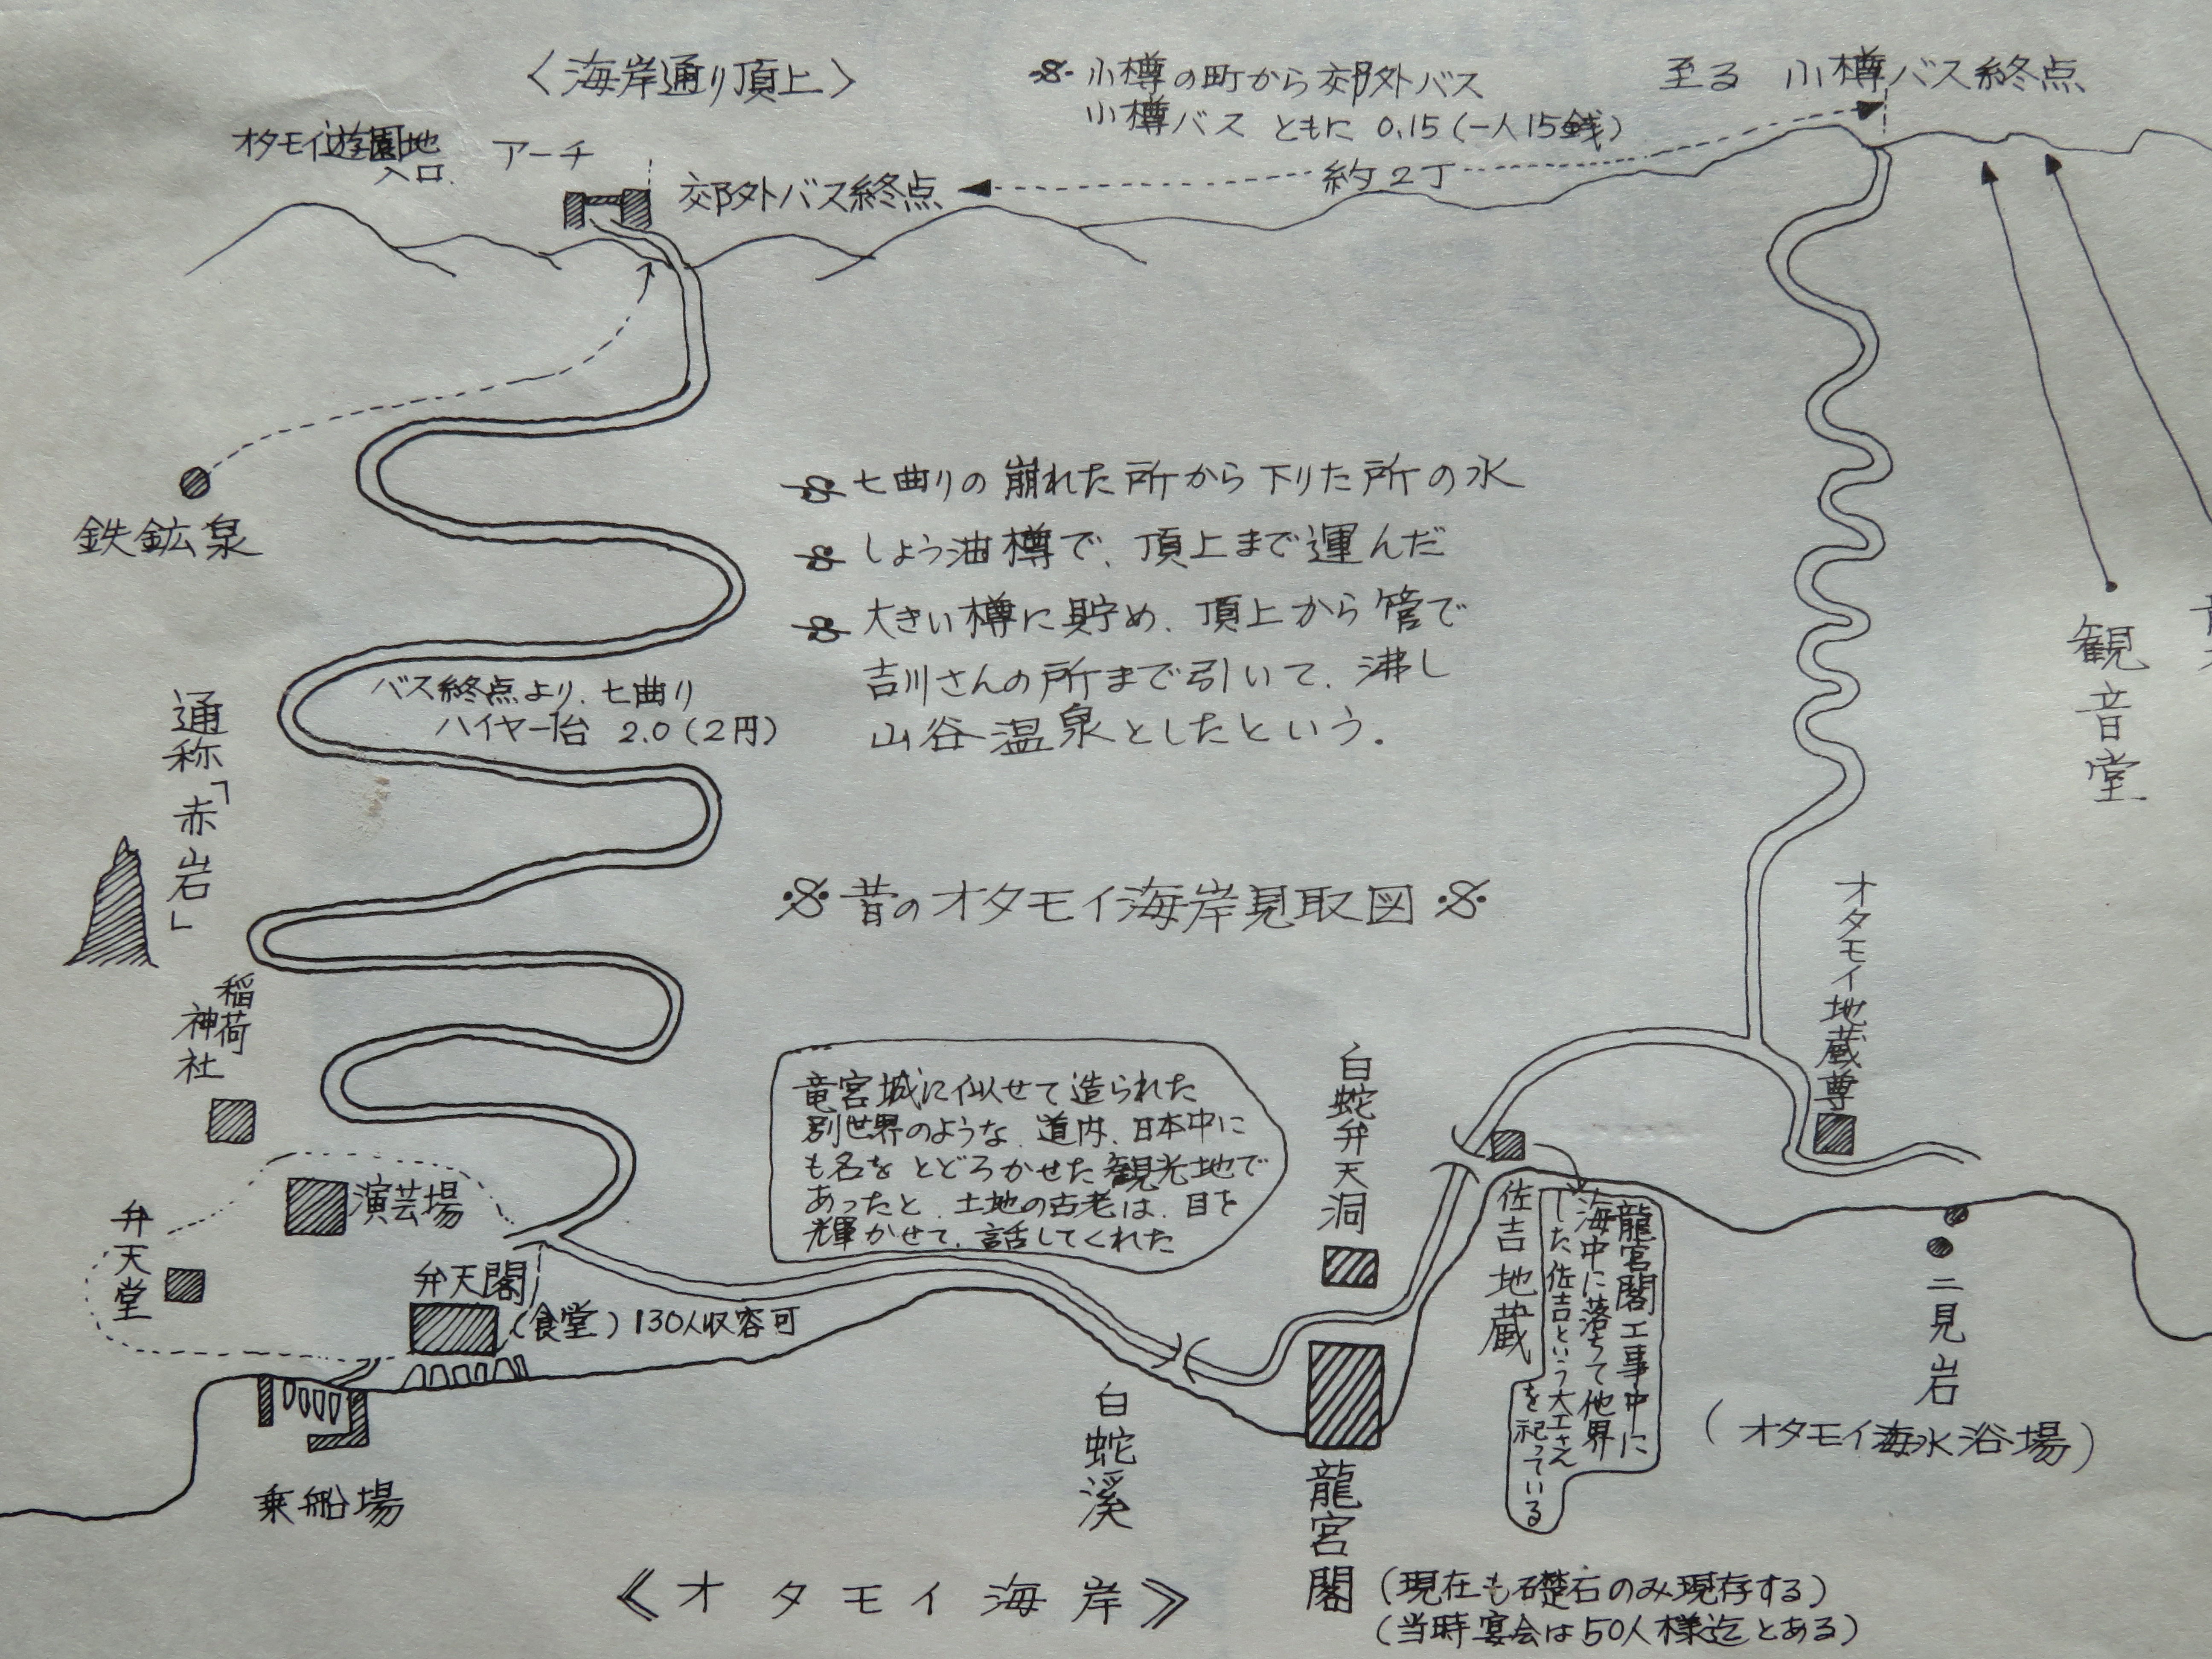 〈海岸通り頂上〉
小樽の町から郊外バス
小樽バス ともに 0.15(一人15銭)
至る 小樽バス終点
オタモイ遊園地
入口
アーチ
郊外バス終点
約2丁
鉄鉱泉
七曲りの崩れた所から下りた所の水
しょう油樽で、頂上まで運んだ
大きい樽に貯め、頂上から管で
吉川さんの所まで引いて、沸し
山谷温泉としたという.
バス終点より、七曲り
ハイヤー1台 2.0(2円)
観音堂
通称「赤岩」
※昔のオタモイ海岸見取図※
オタモイ地蔵尊
稲荷
神社
竜宮城に似せて造られた
別世界のような、道内、日本中に
も名をとどろかせた観光地で
あったと、土地の古老は、目を
輝かせて、話してくれた
白蛇弁天洞
演芸場
弁天堂
弁天閣
(食堂)130人収容可
佐吉地蔵
龍宮閣工事中に
海中に落ちて他界
した佐吉という大工さん
を祀っている
二見岩
(オタモイ海水浴場)
乗船場
白蛇溪
龍宮閣
(現在も礎石のみ現存する)
(当時宴会は50人様迄とある)
《オタモイ海岸》